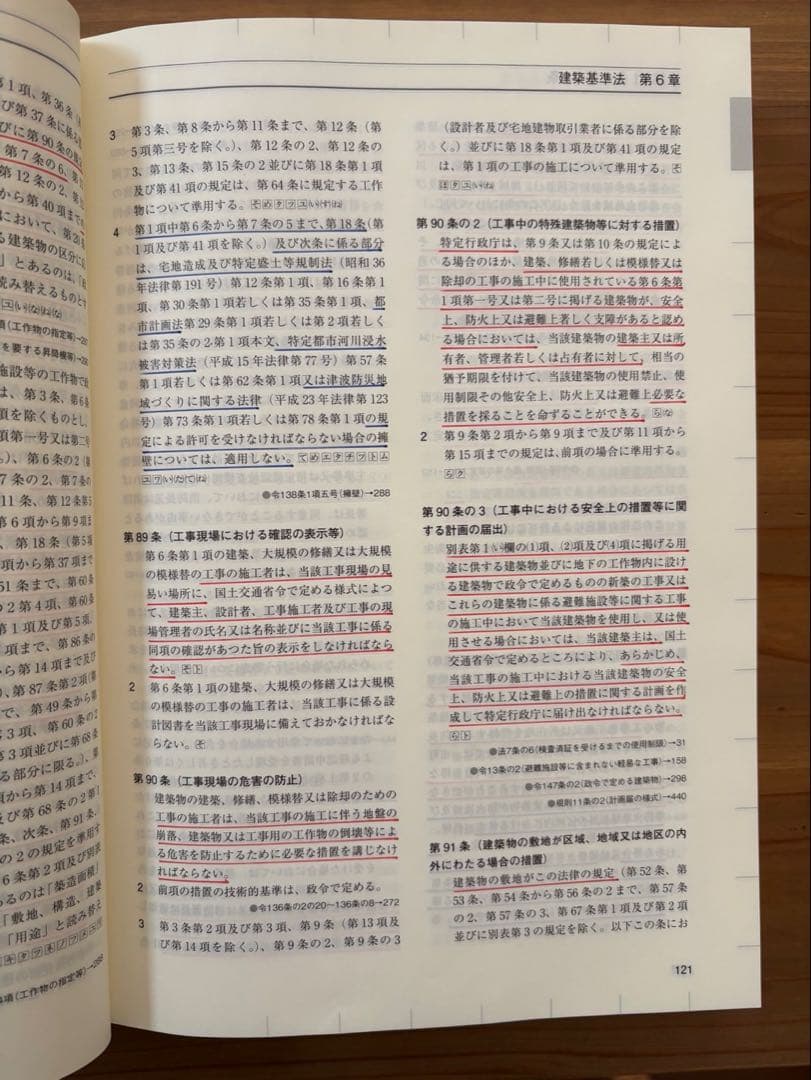 第1項、第36条
び第37条に係
びに第90条の
第7条の6、第
第12条の2、第
から第40項まで
において、第20
る建築物の区分に
」とあるのは、「
読み替えるものと
項(工作物の指定等)→28
を要する昇降機等)→288
施設等の工作物で
は、第3条、第6条
項を除くものとし、
項第一号又は第二号
。)、第6条の2(第
第7条の2、第7
11条、第12条第5
項第6項から第9項ま
、第18条(第5項
から第37項まで
51条まで、第60条
の2第4項、第60条
第1項及び第5項、
で、第86条の
から第14項まで及
、第87条第2項(第
で、第49条から
3項、第60条の2
3項並びに第68条
る部分に限る。)、第
項から第14項まで、
及び第68条の2第1
条、次条、第91条、
の2の規定を準用す
6条第2項及び別表
あるのは「築造面積」
「敷地、構造、建築
「用途」と読み替え
項(工作物の指定等)→288
建築基準法 第6章
3 第3条、第8条から第11条まで、第12条(第
5項第三号を除く。)、第12条の2、第12条の
3、第13条、第15条の2並びに第18条第1項
及び第41項の規定は、第64条に規定する工作
物について準用する。
4 第1項中第6条から第7条の5まで、第18条(第
1項及び第41項を除く。)及び次条に係る部分
は、宅地造成及び特定盛土等規制法(昭和36
年法律第191号)第12条第1項、第16条第1
項、第30条第1項若しくは第35条第1項、都
市計画法第29条第1項若しくは第2項若しく
は第35条の2第1項本文、特定都市河川浸水
被害対策法(平成15年法律第77号)第57条
第1項若しくは第62条第1項又は津波防災地
域づくりに関する法律(平成23年法律第123
号)第73条第1項若しくは第78条第1項の規
定による許可を受けなければならない場合の擁
壁については、適用しない。
●令138条1項五号(擁壁)→288
第89条(工事現場における確認の表示等)
第6条第1項の建築、大規模の修繕又は大規模
の模様替の工事の施工者は、当該工事現場の見
易い場所に、国土交通省令で定める様式によつ
て、建築主、設計者、工事施工者及び工事の現
場管理者の氏名又は名称並びに当該工事に係る
同項の確認があつた旨の表示をしなければなら
ない。
2 第6条第1項の建築、大規模の修繕又は大規模
の模様替の工事の施工者は、当該工事に係る設
計図書を当該工事現場に備えておかなければな
らない。
第90条(工事現場の危害の防止)
建築物の建築、修繕、模様替又は除却のための
工事の施工者は、当該工事の施工に伴う地盤の
崩落、建築物又は工事用の工作物の倒壊等によ
る危害を防止するために必要な措置を講じなけ
ればならない。
2 前項の措置の技術的基準は、政令で定める。
●令136条の2の20~136条の8→272
3 第3条第2項及び第3項、第9条(第13項及
び第14項を除く。)、第9条の2、第9条の3
(設計者及び宅地建物取引業者に係る部分を除
く。)並びに第18条第1項及び第41項の規定
は、第1項の工事の施工について準用する。
第90条の2(工事中の特殊建築物等に対する措置)
特定行政庁は、第9条又は第10条の規定によ
る場合のほか、建築、修繕若しくは模様替又は
除却の工事の施工中に使用されている第6条第
1項第一号又は第二号に掲げる建築物が、安全
上、防火上又は避難上著しく支障があると認め
る場合においては、当該建築物の建築主又は所
有者、管理者若しくは占有者に対して、相当の
猶予期限を付けて、当該建築物の使用禁止、使
用制限その他安全上、防火上又は避難上必要な
措置を採ることを命ずることができる。
2 第9条第2項から第9項まで及び第11項から
第15項までの規定は、前項の場合に準用する。
第90条の3(工事中における安全上の措置等に関
する計画の届出)
別表第1(い)欄の(1)項、(2)項及び(4)項に掲げる用
途に供する建築物並びに地下の工作物内に設け
る建築物で政令で定めるものの新築の工事又は
これらの建築物に係る避難施設等に関する工事
の施工中において当該建築物を使用し、又は使
用させる場合においては、当該建築主は、国土
交通省令で定めるところにより、あらかじめ、
当該工事の施工中における当該建築物の安全
上、防火上又は避難上の措置に関する計画を作
成して特定行政庁に届け出なければならない。
●法7条の6(検査済証を受けるまでの使用制限)→31
●令13条の2(避難施設等に含まれない軽易な工事)→158
●令147条の2(政令で定める建築物)→298
●規則11条の2(計画届の様式)→440
第91条(建築物の敷地が区域、地域又は地区の内
外にわたる場合の措置)
建築物の敷地がこの法律の規定(第52条、第
53条、第54条から第56条の2まで、第57条
の2、第57条の3、第67条第1項及び第2項
並びに別表第3の規定を除く。以下この条にお
121